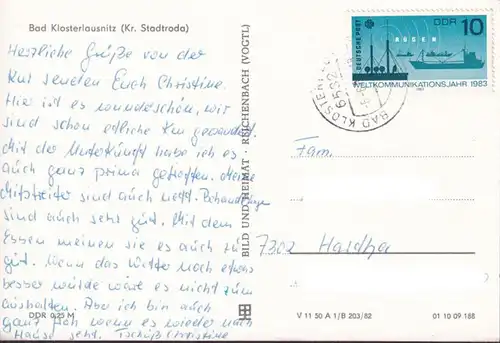 Bad Klosterlausnitz (Kr. Stadtroda)
Herzliche Grüße von der
Kur senden Euch Christine.
Hier ist es wunderschön, wir
sind schon edliche Km gewandert.
Mit der Unterkunft habe ich es
auch ganz prima getroffen. Meine
Mitstreiter sind auch nett. Behandlungen
sind auch sehr gut. Mit dem
Essen meinen sie es auch zu
gut. Wenn das Wetter noch etwas
besser würde wäre es nicht zum
aushalten. Aber ich bin auch
ganz froh wenn es wieder nach
Hause geht. Tschüß Christine
DDR 0,25 M
BILD UND HEIMAT · REICHENBACH (VOGTL)
DEUTSCHE POST
RÜGEN
DDR 10
WELTKOMMUNIKATIONSJAHR 1983
BAD KLOSTERL
Fam.
7302 Hartha
V 11 50 A 1/B 203/82
01 10 09 188